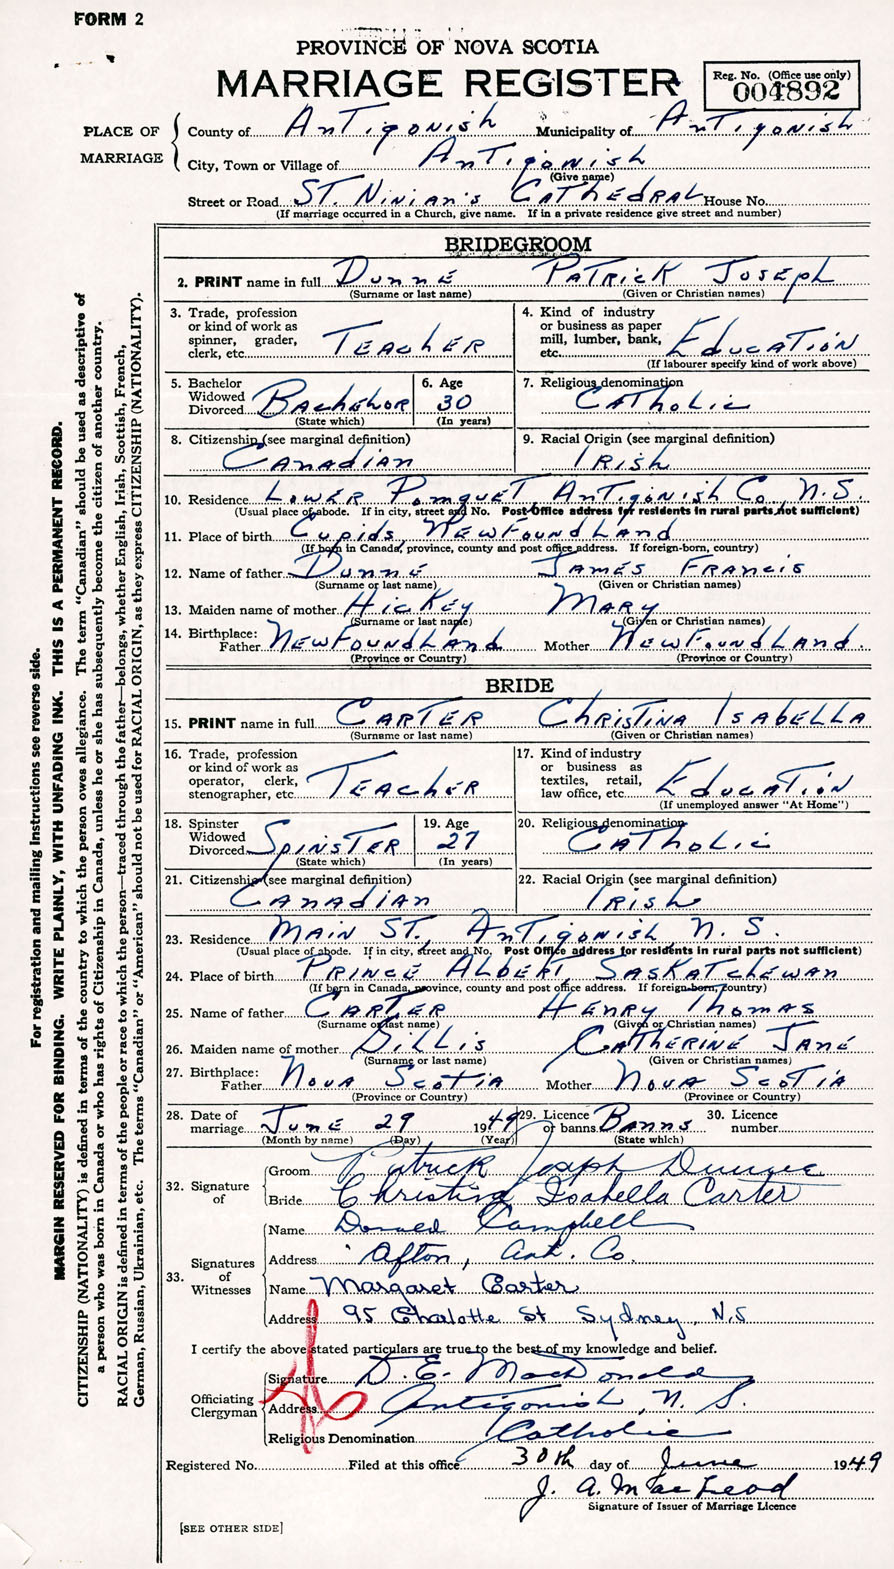 FORM 2
PROVINCE OF NOVA SCOTIA
MARRIAGE REGISTER
Reg. No. (Office use only)
004892
PLACE OF MARRIAGE
County of Antigonish Municipality of Antigonish
City, Town or Village of Antigonish
(Give name)
Street or Road ST. Ninian's Cathedral House No.
(If marriage occurred in a Church, give name. If in a private residence give street and number)
BRIDEGROOM
2. PRINT name in full Dunne Patrick Joseph
(Surname or last name) (Given or Christian names)
3. Trade, profession or kind of work as spinner, grader, clerk, etc. Teacher
4. Kind of industry or business as paper mill, lumber, bank, etc. Education
(If labourer specify kind of work above)
5. Bachelor Widowed Divorced Bachelor
(State which)
6. Age 30
(In years)
7. Religious denomination Catholic
8. Citizenship (see marginal definition) Canadian
9. Racial Origin (see marginal definition) Irish
10. Residence Lower Pomquet, Antigonish Co., N.S.
(Usual place of abode. If in city, street and No. Post Office address for residents in rural parts not sufficient)
11. Place of birth Cupids, Newfoundland
(If born in Canada, province, county and post office address. If foreign-born, country)
12. Name of father Dunne James Francis
(Surname or last name) (Given or Christian names)
13. Maiden name of mother Hickey Mary
(Surname or last name) (Given or Christian names)
14. Birthplace: Father Newfoundland Mother Newfoundland.
(Province or Country) (Province or Country)
BRIDE
15. PRINT name in full Carter Christina Isabella
(Surname or last name) (Given or Christian names)
16. Trade, profession or kind of work as operator, clerk, stenographer, etc. Teacher
17. Kind of industry or business as textiles, retail, law office, etc. Education
(If unemployed answer "At Home")
18. Spinster Widowed Divorced Spinster
(State which)
19. Age 27
(In years)
20. Religious denomination Catholic
21. Citizenship (see marginal definition) Canadian
22. Racial Origin (see marginal definition) Irish
23. Residence Main St., Antigonish N.S.
(Usual place of abode. If in city, street and No. Post Office address for residents in rural parts not sufficient)
24. Place of birth Prince Albert, Saskatchewan
(If born in Canada, province, county and post office address. If foreign-born, country)
25. Name of father Carter Henry Thomas
(Surname or last name) (Given or Christian names)
26. Maiden name of mother Gillis Catherine Jane
(Surname or last name) (Given or Christian names)
27. Birthplace: Father Nova Scotia Mother Nova Scotia
(Province or Country) (Province or Country)
28. Date of marriage June 29 1949
(Month by name) (Day) (Year)
29. Licence or banns Banns
(State which)
30. Licence number
32. Signature of
Groom Patrick Joseph Dunne
Bride Christina Isabella Carter
33. Signatures of Witnesses
Name Donald Campbell
Address Afton, Ant. Co.
Name Margaret Carter
Address 95 Charlotte St Sydney, N.S
I certify the above stated particulars are true to the best of my knowledge and belief.
Officiating Clergyman
Signature D. E. MacDonald
Address Antigonish, N. S.
Religious Denomination Catholic
Registered No. Filed at this office 30th day of June 1949
J. A. MacLeod
Signature of Issuer of Marriage Licence
[SEE OTHER SIDE]
For registration and mailing instructions see reverse side.
MARGIN RESERVED FOR BINDING. WRITE PLAINLY, WITH UNFADING INK. THIS IS A PERMANENT RECORD.
CITIZENSHIP (NATIONALITY) is defined in terms of the country to which the person owes allegiance. The term "Canadian" should be used as descriptive of
a person who was born in Canada or who has rights of Citizenship in Canada, unless he or she has subsequently become the citizen of another country.
RACIAL ORIGIN is defined in terms of the people or race to which the person—traced through the father—belongs, whether English, Irish, Scottish, French,
German, Russian, Ukrainian, etc. The terms "Canadian" or "American" should not be used for RACIAL ORIGIN, as they express CITIZENSHIP (NATIONALITY).